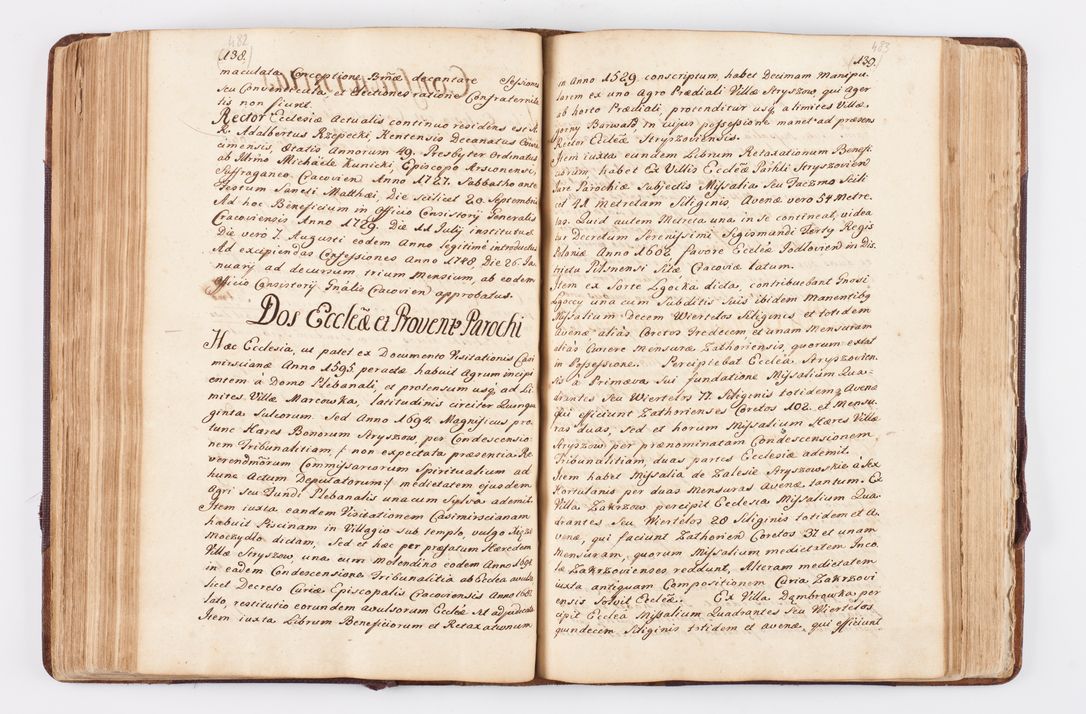 482
(138.
maculata Conceptione Bmæ decantare Sessiones
seu Conventicula et Electiones ratione Confraternita
tis non fiunt.
Rector Ecclesiæ Actualis continuo residens est A.
R. Adalbertus Rzepecki, Kentensis Decanatus Oswie
cimensis, Ætatis Annorum 49. Presbyter Ordinatus
ab Illmo Michaele Kunicki, Episcopo Arsconensi,
Suffraganeo Cracovien Anno 1727. Sabbatho ante
Festum Sancti Matthæi, Die scilicet 20. Septembris
Ad hoc Beneficium in Officio Consistorij Generalis
Cracoviensis Anno 1729. Die 11 Julij institutus
Die vero 7. Augusti eodem Anno legitime introductus
Ad excipiendas Confessiones Anno 1748. Die 26. Ja-
nuarij ad decursum trium Mensium, ab eodem
Officio Consistorij Gnalis Cracovien approbatus.
Dos Eccleæ et Provent9 Parochi
Hæc Ecclesia, ut patet ex Documento Visitationis Casi
mirscianæ Anno 1595 peractæ habuit Agrum incipi
entem à Domo Plebanali, et protensum usq3 ad Li
mites Villæ Marcowka, latitudinis circiter Quinqua
ginta Sulcorum. Sed Anno 1694. Magnificus pro
tunc Hæres Bonorum Stryszow, per Condescensio
nem Tribunalitiam, /: non expectata præsentia Re
verendmorum Commissariorum Spiritualium ad
hunc Actum Deputatorum :/ medietatem ejusdem
Agri seu Fundi Plebanalis una cum Sylva ademit.
Item iuxta eandem Visitationem Casimirscianam
habuit Piscinam in Villagio sub templo, vulgo Xięże
Moczydło dictam, Sed et hæc per præfatum Hæredem
Villæ Stryszow una cum Molendino eodem Anno 1694
in eadem Condescensione Tribunalitia ab Ecclea avulsa
licet Decreto Curiæ Episcopalis Cracoviensis Anno 1682
lato, restitutio eorundem avulsorum Eccleæ est adjudicata
Item iuxta Librum Beneficiorum et Retaxationum
483
(139.
in Anno 1529. conscriptum, habet Decimam Manipu
larem ex uno Agro Prædiali Villæ Stryszow, qui Ager
ab horto Prædiali, protenditur usq3 a limites Villæ
gorny Barwałd, in cujus possessione manet ad præsens
Rector Eccleæ Stryszoviensis.
Item iuxta eundem Librum Retaxationum Benefi-
ciorum habet Ex Villis Eccleæ Paihli Stryszovien
Jure Parochiæ Subjectis Missalia seu Taczmo Scili
cet 41 metretam Siliginis Avenæ vero 54 Metre
tas. Quid autem Metreta una in se contineat, videa
tur Decretum Serenissimi Sigismundi Tertij Regis
Poloniæ Anno 1602. favore Eccleæ Jodlovien in Dis
trictu Pilsnensi Sitæ Cracoviæ latum.
Item ex Sorte Lgocka dicta, contribuebant Gnosi
Lgoccy una cum Subditis Suis ibidem Manentib9
Missalium Decem Wiertelos Siliginis et totidem
Avenæ alias Coretos Tredecem, et unam Mensuram
alias Cwierc Mensuræ Zathoriensis, quorum extat
in Possessione. Percipiebat Ecclea Stryszovien
sis à Primæva Sui fundatione Missalium Qua-
drantes Seu Wiertelos 77. Siliginis totidem Avenæ
qui efficiunt Zathorienses Coretos 102. et Mensu
ras duas, Sed et horum Missalium Hæres Villæ
Stryszow per prænominatam Condescensionem
Tribunalitiam, duas partes Ecclesiæ ademit.
Item habet Missalia de Zalesie Stryszowskie à Sex
Hortulanis per duas Mensuras Avenæ tantum. Ex
Villa Zakrzow percipit Ecclesia Missalium Qua
drantes Seu Wiertelos 28 Siliginis totidem et A.
venæ, qui faciunt Zathorien Coretos 37 et unam
Mensuram, quorum Missalium medietatem Inco
læ Zakrzovienses reddunt, Alteram medietatem
iuxta antiquam Compositionem Curia Zakrzovi
ensis Solvit Eccleæ. Ex Villa Dąmbrowka per
cipit Ecclea Missalium Quadrantes Seu Wiertelos
quindecem Siliginis totidem et avenæ, qui efficiunt